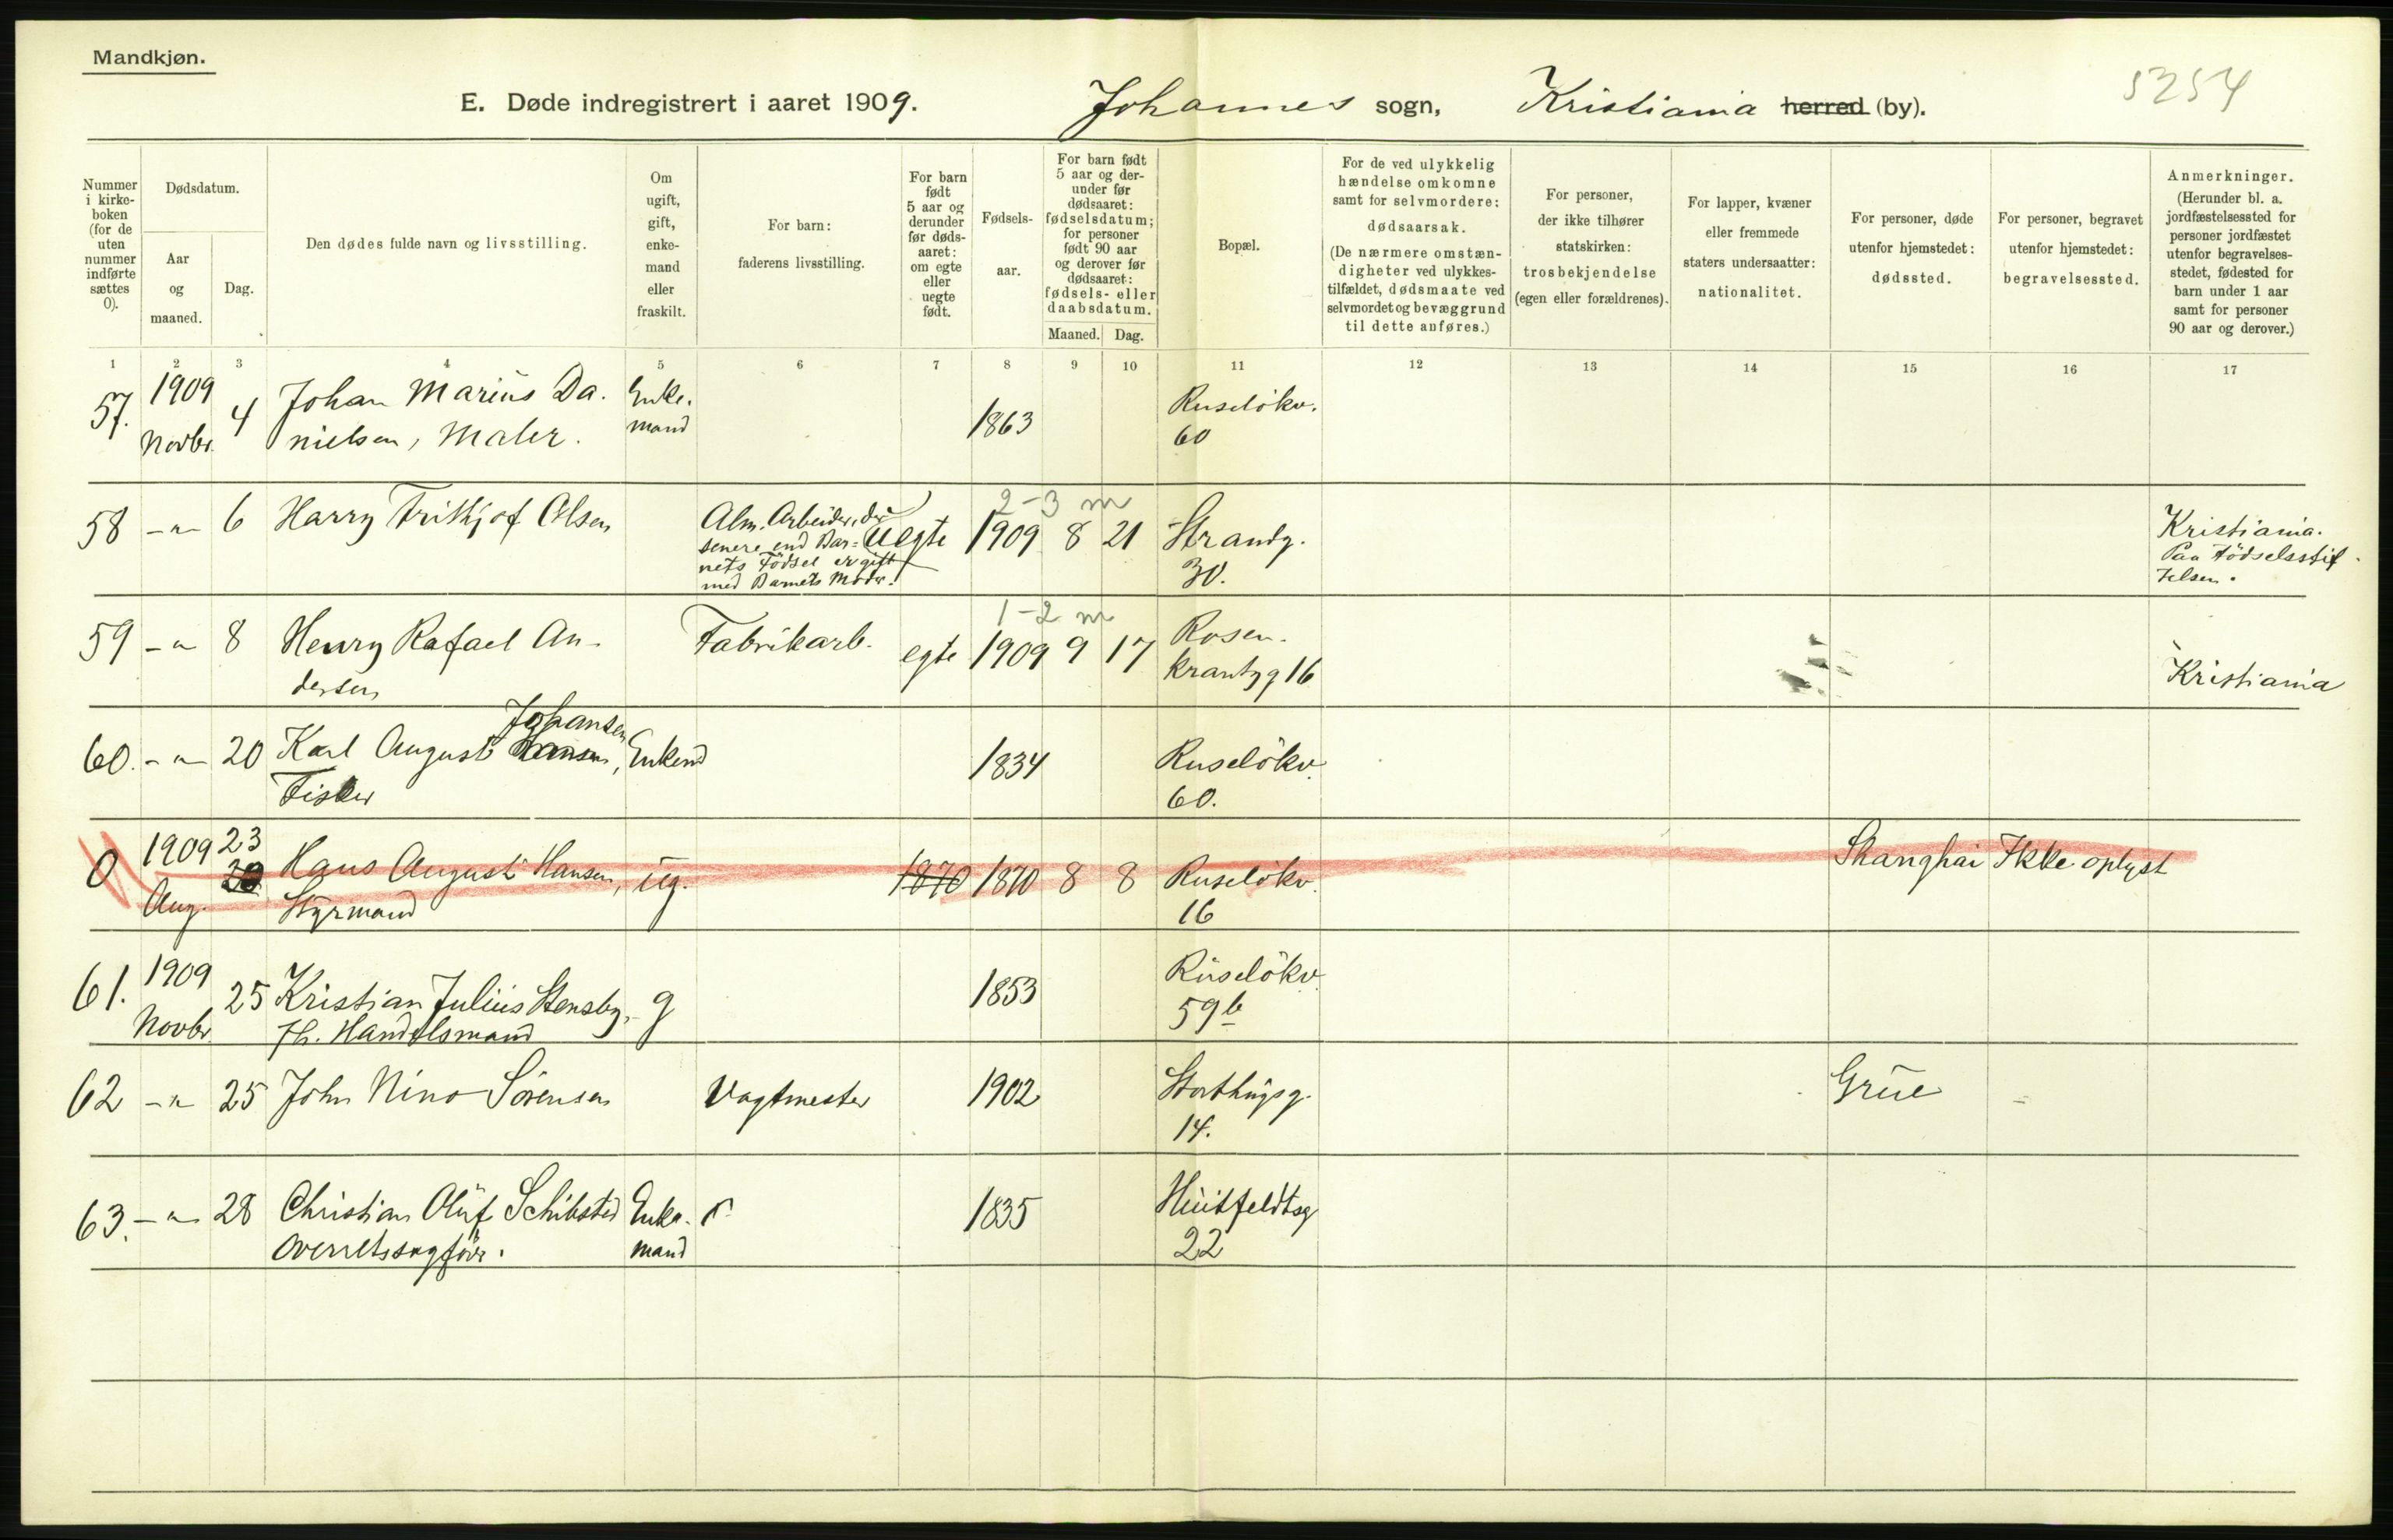 Mandkjøn.
E. Døde indregistrert i aaret 1909. Johannes sogn, Kristiania herred (by). 5254
Nummer i kirke-boken (for de uten nummer indførte sættes 0).
Dødsdatum.
Aar og maaned.
Dag.
Den dødes fulde navn og livsstilling.
Om ugift, gift, enke-mand eller fraskilt.
For barn: faderens livsstilling.
For barn født 5 aar og derunder før døds-aaret: om egte eller uegte født.
Fødsels-aar.
For barn født 5 aar og der-under før dødsaaret: fødselsdatum; for personer født 90 aar og derover før dødsaaret: fødsels- eller daabsdatum.
Maaned. Dag.
Bopæl.
For de ved ulykkelig hændelse omkomne samt for selvmordere: dødsaarsak. (De nærmere omstæn-digheter ved ulykkes-tilfældet, dødsmaate ved selvmordet og bevæggrund til dette anføres.)
For personer, der ikke tilhører statskirken: trosbekjendelse (egen eller forældrenes).
For lapper, kvæner eller fremmede staters undersaatter: nationalitet.
For personer, døde utenfor hjemstedet: dødssted.
For personer, begravet utenfor hjemstedet: begravelsessted.
Anmerkninger. (Herunder bl. a. jordfæstelsessted for personer jordfæstet utenfor begravelses-stedet, fødested for barn under 1 aar samt for personer 90 aar og derover.)
1 2 3 4 5 6 7 8 9 10 11 12 13 14 15 16 17
57. 1909 Novbr. 4 Johan Marius Da-nielsen, Maler. Enke-mand 1863 Ruseløkv. 60
58 -"- 6 Harry Frithjof Olsen Alm. Arbeider, der senere end Bar-nets Födsel er gift med Barnets Moder. Uegte 2-3 m 1909 8 21 Strandg. 30. Kristiania. Paa Födselsstif-telsen.
59 -"- 8 Henry Rafael An-dersen Fabrikarb. egte 1-2 m 1909 9 17 Rosen-krantzg 16 Kristiania
60. -"- 20 Karl August Hansen Johansen, Fisker Enkemd 1834 Ruseløkv. 60.
0 1909 Aug. 23 Hans August Hansen, Styrmand ug. 1870 1870 8 8 Ruseløkv. 16 Shanghai Ikke oplyst
61. 1909 Novbr. 25 Kristian Julius Stensby, fh. Handelsmand g 1853 Ruseløkv. 59 b
62 -"- 25 John Nino Sörensen Vagtmester 1902 Storthingsg. 14. Grue
63. -"- 28 Christian Oluf Schibsted Overretssagförer. Enke-mand 1835 Huitfeldtsg 22